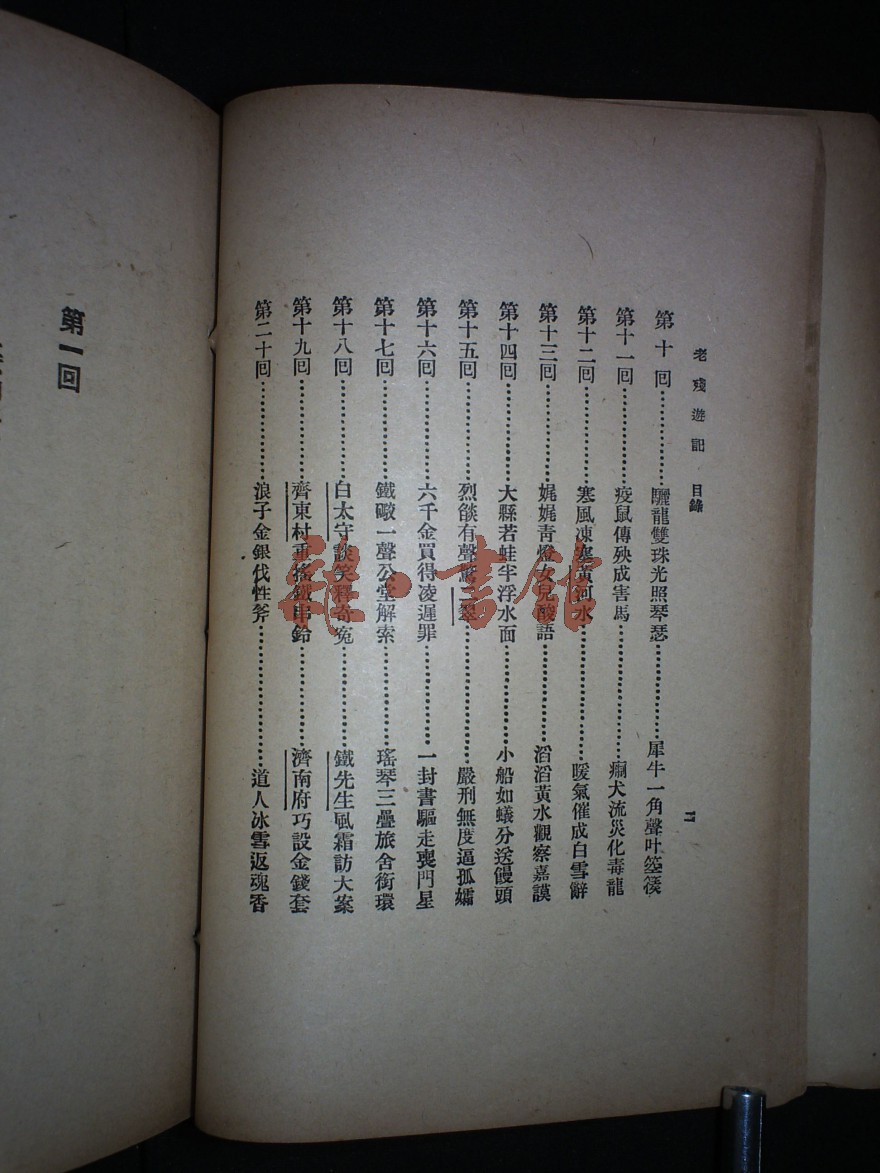 老殘遊記 目錄
第十回………………驪龍雙珠光照琴瑟………………犀牛一角聲叶箜篌
第十一回………………疫鼠傳殃成害馬………………瘈犬流災化毒龍
第十二回………………寒風凍塞黃河水………………暖氣催成白雪辭
第十三回………………娓娓青燈女兒酸語………………滔滔黃水觀察嘉謨
第十四回………………大縣若蛙半浮水面………………小船如蟻分送饅頭
第十五回………………烈燄有聲驚二翠………………嚴刑無度逼孤孀
第十六回………………六千金買得凌遲罪………………一封書驅走喪門星
第十七回………………鐵礮一聲公堂解索………………瑤琴三疊旅舍銜環
第十八回………………白太守談笑釋奇冤………………鐵先生風霜訪大案
第十九回………………齊東村重搖鐵串鈴………………濟南府巧設金錢套
第二十回………………浪子金銀伐性斧………………道人冰雪返魂香
第一回
書館